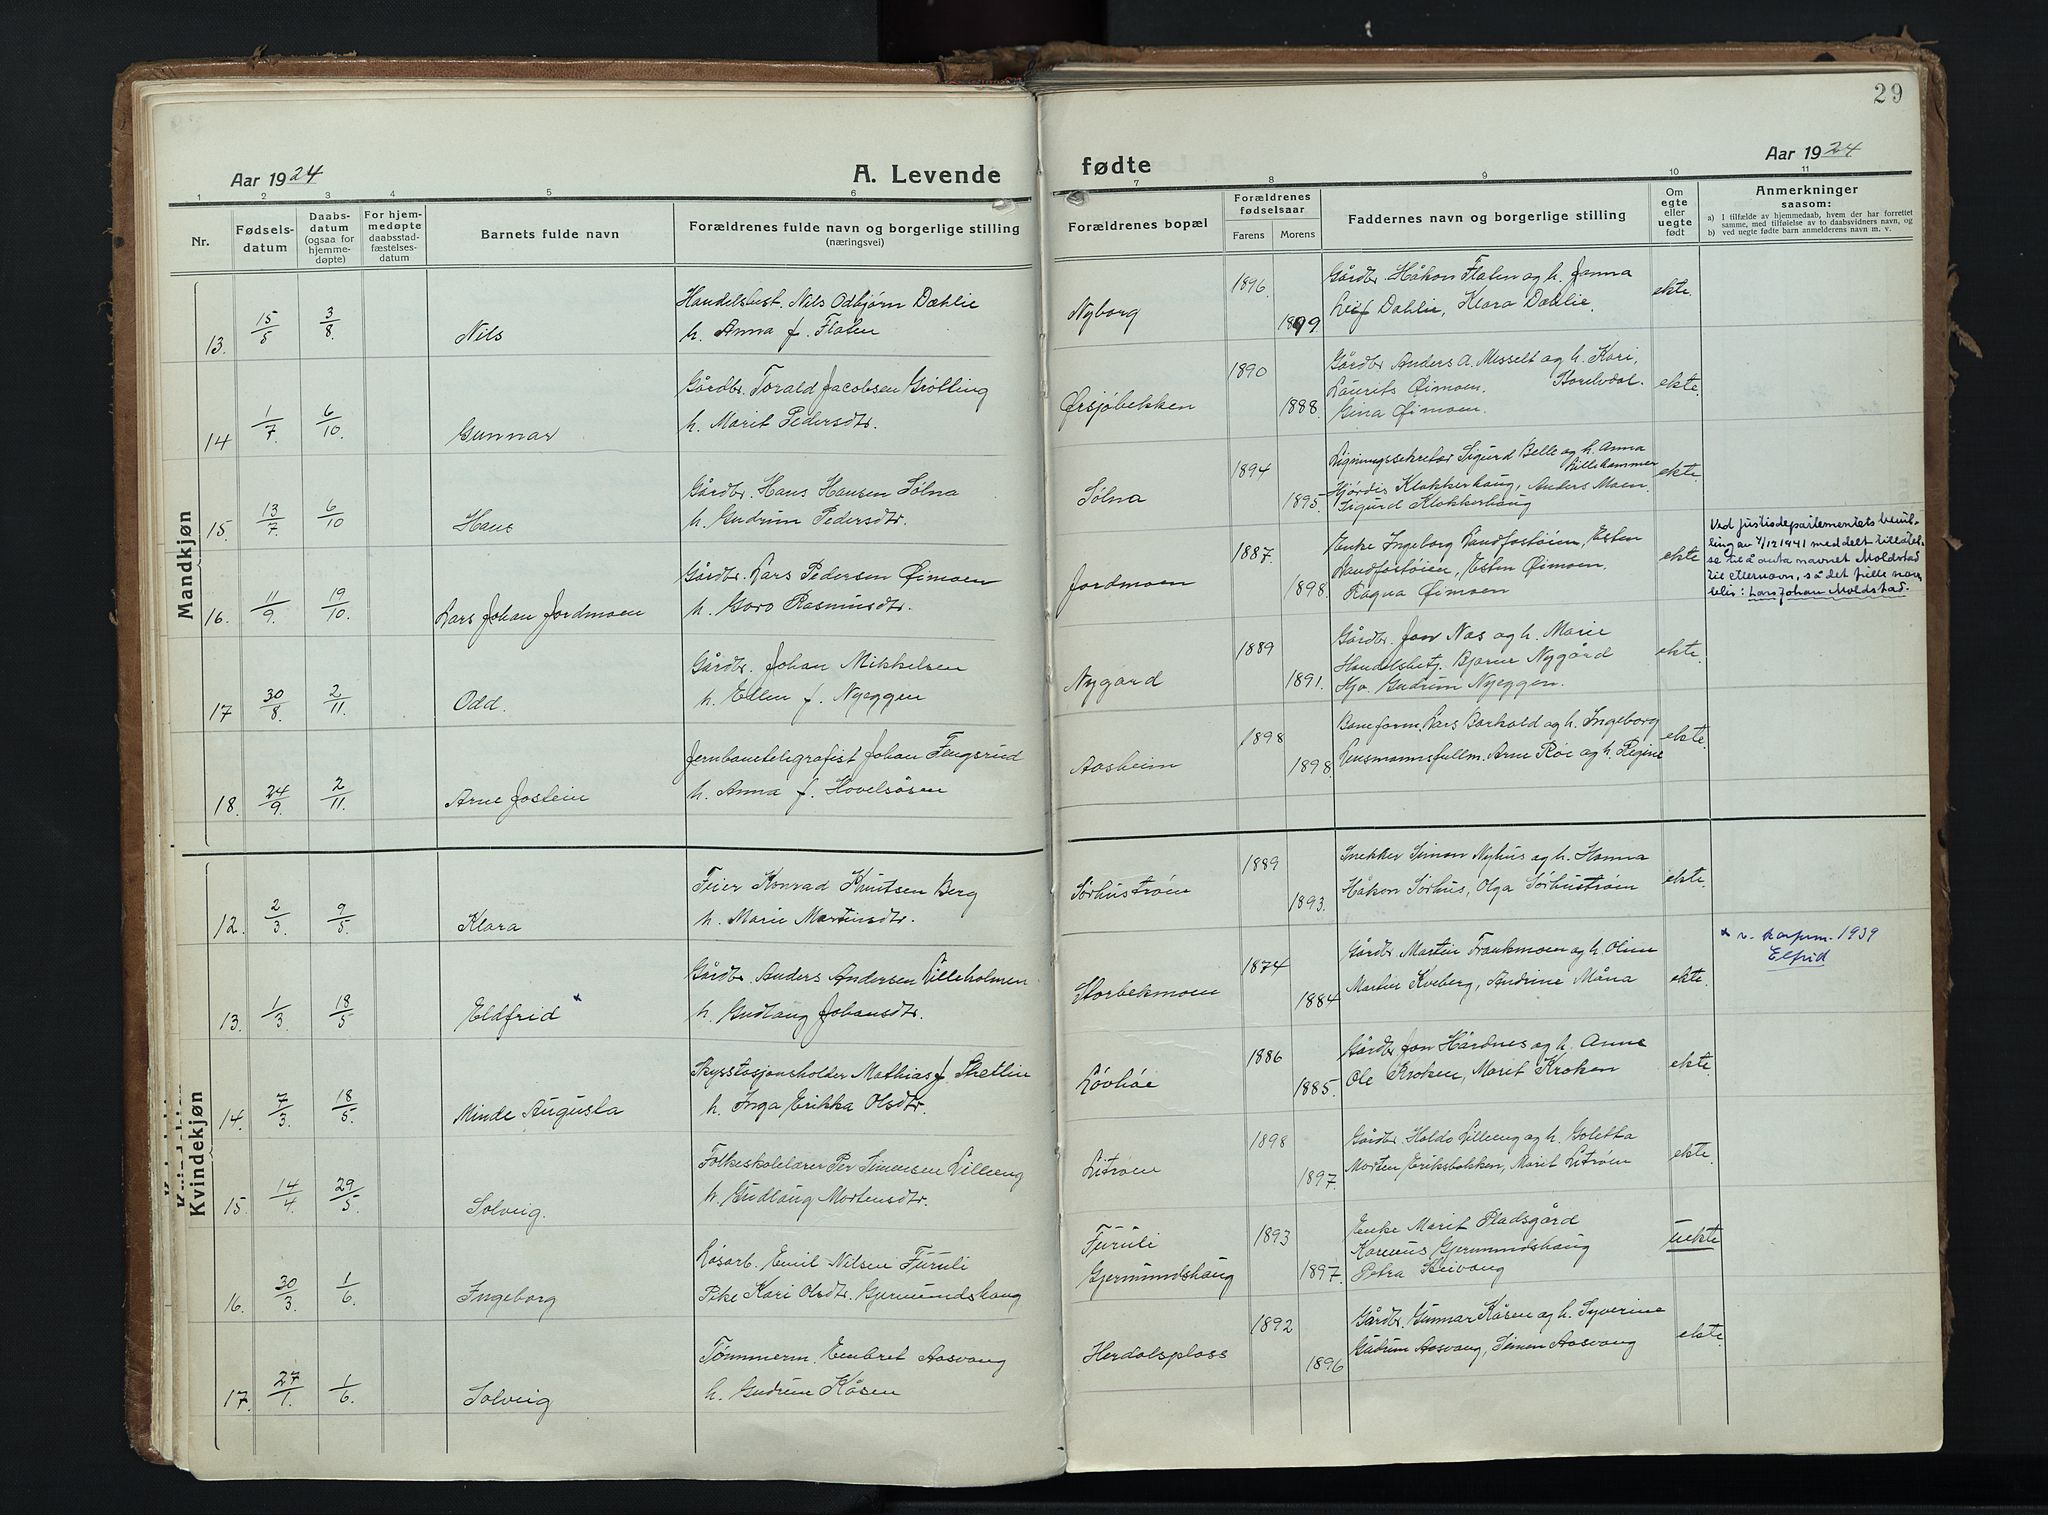 29
Aar 1924
A. Levende fødte
Aar 1924
1 2 3 4 5 6 7 8 9 10 11
Nr.
Fødsels-
datum
Daabs-
datum
(ogsaa for
hjemme-
døpte)
For hjem-
medøpte
daabsstad-
fæstelses-
datum
Barnets fulde navn
Forældrenes fulde navn og borgerlige stilling
(næringsvei)
Forældrenes bopæl
Forældrenes
fødselsaar
Farens Morens
Faddernes navn og borgerlige stilling
Om
egte
eller
uegte
født
Anmerkninger
saasom:
a) I tilfælde av hjemmedaab, hvem der har forrettet
samme, med tilføielse av to daabsvidners navn, og
b) ved uegte fødte barn anmelderens navn m. v.
Mandkjøn
13. 15/5 3/8 Nils
Handelsbest. Nils Odbjørn Dæhlie
h. Anna f. Flaten
Nyborg 1896. 1899.
Gårdbr. Håkon Flaten og h. Janna
Leif Dahlie, Klara Dæhlie.
ekte.
14 1/7 6/10. Gunnar
Gårdbr. Torald Jacobsen Grøtting
h. Marit Pedersdtr.
Ørsjøbekken 1890 1888.
Gårdbr Anders A. Misselt og h. Kari,
Laurits Øimoen.
Gina Øimoen.
ekte.
15. 13/7 6/10 Hans
Gårdbr. Hans Hansen Sølna
h. Gudrun Pedersdtr.
Sølna 1894 1895.
Ligningssekretær Sigurd Belle og h. Anna
Lillehammer
Hjørdis Klokkerhaug, Anders Moen
Sigurd Klokkerhaug
ekte.
16. 11/9. 19/10. Lars Johan Jordmoen
Gårdbr. Lars Pedersen Øimoen
h. Goro Rasmusdtr.
Jordmoen 1887. 1898.
Enke Ingeborg Sandfostøien, Esten
Sandfostøien, Esten Øimoen.
Ragna Øimoen
ekte
Ved Justisdepartementets bevil-
ling av 4/12 1941 meddelt tillatel-
se til å anta navnet Moldstad
til etternavn, så det fulle navn
blir: Lars Johan Moldstad.
17 30/8. 2/11. Odd.
Gårdbr. Johan Mikkelsen
h. Ellen f. Nyeggen
Nygard 1889 1891.
Gårdbr. Jon Næs og h. Marie
Handelsbetj. Bjarne Nygård
Gudrun Nyeggen.
ekte.
18. 24/9. 2/11. Arne Jostein
Jernbanetelegrafist Johan Fangsrud
h. Anna f. Hovelsåsen
Aasheim 1898 1898.
Baneform. Lars Barkald og h. Ingeborg
Lensmannsfullm. Arne Røe og h. Regine
ekte.
Kvindekjøn
12. 2/3. 9/5. Klara
Feier Konrad Knutsen Berg
h. Marie Martinsdtr.
Sørhustrøen 1889 1893.
Snekker Simon Nyhus og h. Hanna
Håkon Sørhus, Olga Sørhustrøen
ekte.
13. 1/3. 18/5 Eldfrid x
Gårdbr. Anders Andersen Lilleholmen
h. Gudlaug Johansdtr.
Storbekmoen 1874 1884
Gårdbr. Martin Frankmoen og h. Oline
Martin Kveberg, Andrine Måna
ekte.
x v. konfirm. 1939
Elfrid
14. 7/3. 18/5. Minde Augusta
Skysstasjonsholder Mathias J. Sletlien
h. Inga Erikka Olsdtr.
Løvhøe 1886 1885.
Gårdbr Jon Hårdnes og h. Anne
Ole Kroken, Marit Kroken
ekte.
15. 14/4. 29/5. Solveig.
Folkeskolelærer Per Simensen Lilleeng
h. Gudlaug Mortensdtr.
Litrøen 1898 1897.
Gårdbr. Haldo Lilleeng og h. Goletta
Morten Eriksbakken, Marit Litrøen
ekte.
16. 30/3. 1/6. Ingeborg
Løsarb. Emil Nilsen Furuli
Pike Kari Olsdtr. Gjermundshaug
Furuli
Gjermundshaug 1893 1897.
Enke Marit Pladsgård
Karenus Gjermundshaug
Petra
uekte
17. 27/1. 1/6. Solveig
Tømmerm. Embret Aasvang
h. Gudrun Kåsen
Herdalsplass 1892 1896
Gårdbr. Gunnar Kåsen og h. Syverine
Gudrun Aasvang, Simen Aasvang
ekte.